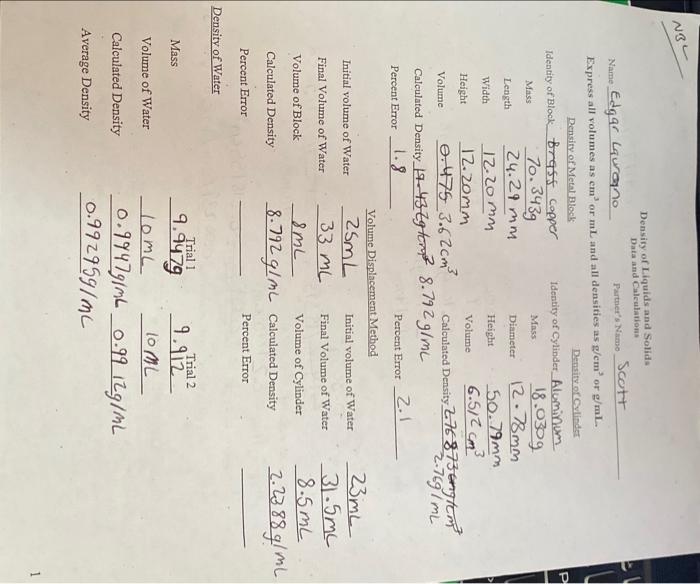 NBC
Density of Liquids and Solids
Data and Calculations
Name Edgar Partner's Name Scott
Express all volumes as cm³ or mL and all densities as g/cm³ or g/mL.
Density of Metal Block Density of Cylinder
Identity of Block Brass copper Identity of Cylinder Aluminum
Mass 70.343g Mass 18.030g
Length 24.29 mm Diameter 12.78mm
Width 12.20 mm Height 50.79mm
Height 12.20mm Volume 6.512 cm³
Volume 3.62cm³ Calculated Density 2.769/mL
Calculated Density 8.792 g/mL
Percent Error 1.8 Percent Error 2.1
Volume Displacement Method
Initial volume of Water 25mL Initial volume of Water 23mL
Final Volume of Water 33 mL Final Volume of Water 31.5mL
Volume of Block 8mL Volume of Cylinder 8.5mL
Calculated Density 8.792g/mL Calculated Density 2.2388g/mL
Percent Error Percent Error
Density of Water
Trial 1 Trial 2
Mass 9.947g 9.912
Volume of Water 10mL 10mL
Calculated Density 0.9947g/mL 0.9912g/mL
Average Density 0.99295g/mL
1